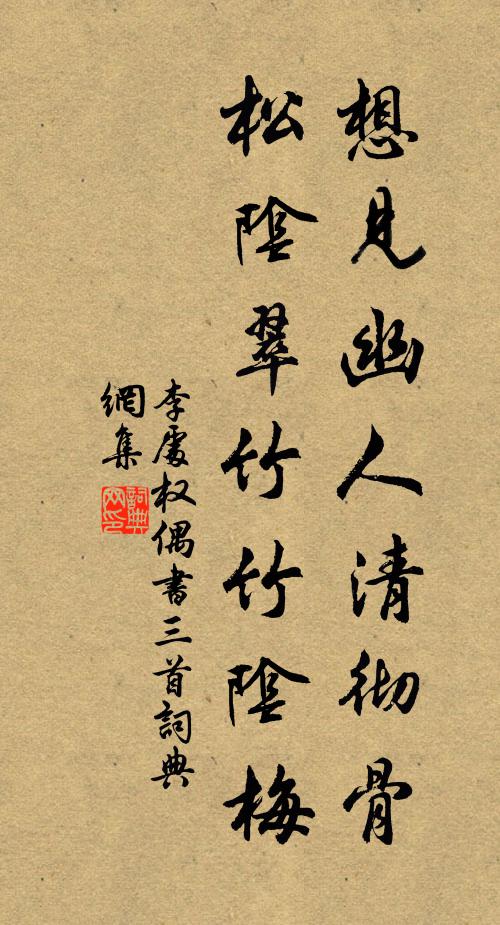 想見幽人清彻骨
松陰翠竹竹陰梅
李處权偶書三首詞典
網集
詞典
网印